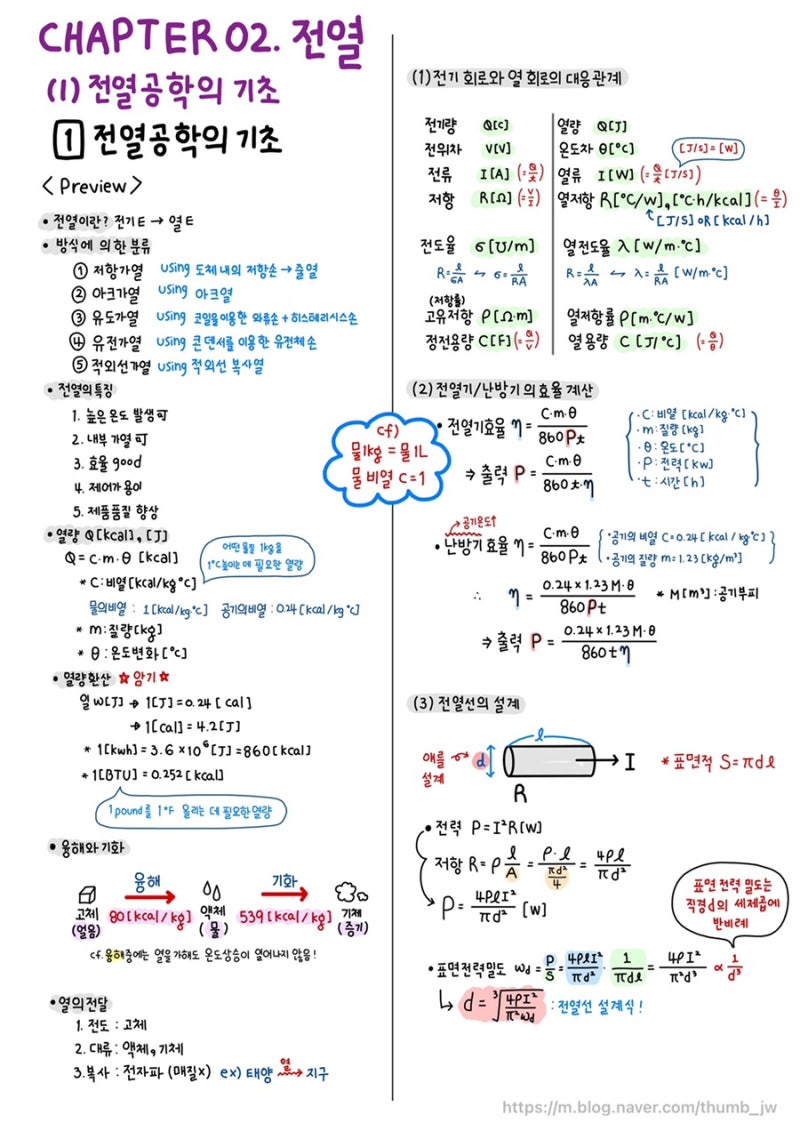 CHAPTER 02. 전열
(1) 전열공학의 기초
1 전열공학의 기초
< Preview >
• 전열이란? 전기E → 열E
• 방식에 의한 분류
① 저항가열 using 도체내의 저항손 → 줄열
② 아크가열 using 아크열
③ 유도가열 using 코일을이용한 와류손 + 히스테리시스손
④ 유전가열 using 콘덴서를 이용한 유전체손
⑤ 적외선가열 using 적외선 복사열
• 전열의 특징
1. 높은 온도 발생 可
2. 내부 가열 可
3. 효율 good
4. 제어가 용이
5. 제품품질 향상
• 열량 Q[kcal], [J]
Q = C·m·θ [kcal]
어떤 물질 1kg을
1°C높이는 데 필요한 열량
* C:비열[kcal/kg°C]
물의비열 : 1[kcal/kg·°C] 공기의비열 : 0.24[kcal/kg°C]
* m:질량[kg]
* θ:온도변화[°C]
• 열량환산 ☆암기☆
일 W[J] → 1[J] = 0.24[cal]
→ 1[cal] = 4.2[J]
* 1[kwh] = 3.6 ×10⁶[J] = 860[kcal]
* 1[BTU] = 0.252[kcal]
1pound를 1°F 올리는 데 필요한 열량
• 융해와 기화
융해 기화
고체 80[kcal/kg] 액체 539[kcal/kg] 기체
(얼음) (물) (증기)
cf. 융해중에는 열을 가해도 온도상승이 일어나지 않음!
• 열의전달
1. 전도 : 고체
2. 대류 : 액체, 기체
3. 복사 : 전자파 (매질X) ex) 태양 열 지구
cf)
물1kg = 물1L
물 비열 C=1
(1) 전기 회로와 열 회로의 대응관계
전기량 Q[C] 열량 Q[J]
전위차 V[V] 온도차 θ[°C] [J/S]=[W]
전류 I[A] (=Q/t) 열류 I[W] (=Q/t[J/S])
저항 R[Ω] (=V/I) 열저항 R[°C/W], [°C·h/kcal] (=θ/I)
[J/S] OR [kcal/h]
전도율 σ[℧/m] 열전도율 λ[W/m·°C]
R=l/σA ↔ σ=l/RA R=l/λA ↔ λ=l/RA [W/m·°C]
(저항률)
고유저항 ρ[Ω·m] 열저항률 ρ[m·°C/W]
정전용량 C[F] (=Q/V) 열용량 C[J/°C] (=Q/θ)
(2) 전열기/난방기의 효율 계산
• 전열기효율 η = C·m·θ / 860Pt
⇒ 출력 P = C·m·θ / 860t·η
· C : 비열 [kcal/kg·°C]
· m : 질량 [kg]
· θ : 온도 [°C]
· P : 전력 [kW]
· t : 시간 [h]
공기온도↑
• 난방기효율 η = C·m·θ / 860Pt
· 공기의 비열 C=0.24[kcal/kg°C]
· 공기의 질량 m=1.23[kg/m³]
∴ η = 0.24×1.23M·θ / 860Pt * M[m³]:공기부피
⇒ 출력 P = 0.24×1.23M·θ / 860tη
(3) 전열선의 설계
l
얘를 d I * 표면적 S=πdl
설계
R
• 전력 P=I²R[W]
저항 R = ρ l/A = ρ·l / (πd²/4) = 4ρl/πd²
P = 4ρlI²/πd² [W]
표면 전력 밀도는
직경d의 세제곱에
반비례
• 표면전력밀도 Wd = P/S = 4ρlI²/πd² · 1/πdl = 4ρI²/π²d³ ∝ 1/d³
↳ d = ³√(4ρI²/π²Wd) : 전열선 설계식!
https://m.blog.naver.com/thumb_jw